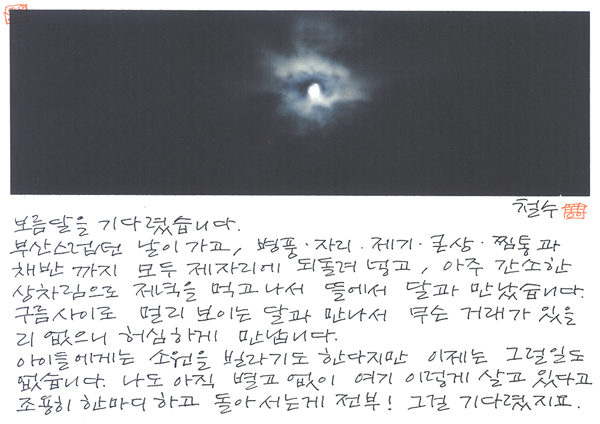 철수
보름달을 기다렸습니다.
부산스럽던 날이 가고, 병풍·자리·제기·큰상·찜통과
채반까지 모두 제자리에 되돌려 넣고, 아주 간소한
상차림으로 저녁을 먹고나서 뜰에서 달과 만났습니다.
구름사이로 멀리 보이는 달과 만나서 무슨 거래가 있을
리 없으니 허심하게 만납니다.
아이들에게는 소원을 빌라기도 한다지만 이제는 그럴일도
없습니다. 나도 아직 별고 없이 여기 이렇게 살고 있다고
조용히 한마디 하고 돌아서는게 전부! 그걸 기다렸지요.